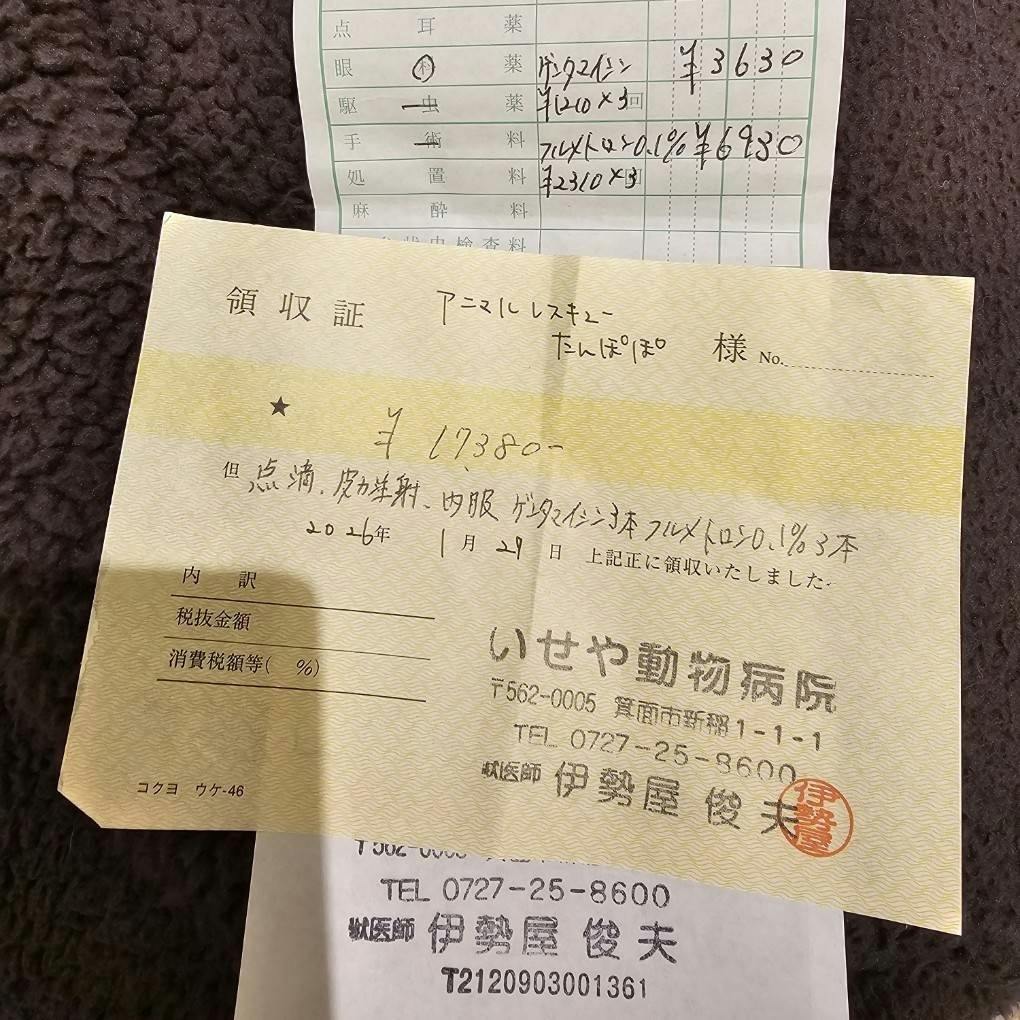 点耳薬
眼科薬 ゲンタマイシン ¥3630
駆虫薬 ¥1210×3回
手術料 フルメトロン0.1% ¥6930
処置料 ¥2310×3
麻酔料
虫検査料
領収証 アニマルレスキュー
たんぽぽ 様 No.
★ ¥17,380-
但 点滴、皮力注射、内服 ゲンタマイシン3本 フルメトロン0.1% 3本
2026年 1月29日 上記正に領収いたしました
内訳
税抜金額
消費税額等( %)
いせや動物病院
〒562-0005 箕面市新稲1-1-1
TEL 0727-25-8600
獣医師 伊勢屋 俊夫
伊勢屋
コクヨ ウケ-46
TEL 0727-25-8600
獣医師 伊勢屋 俊夫
T2120903001361